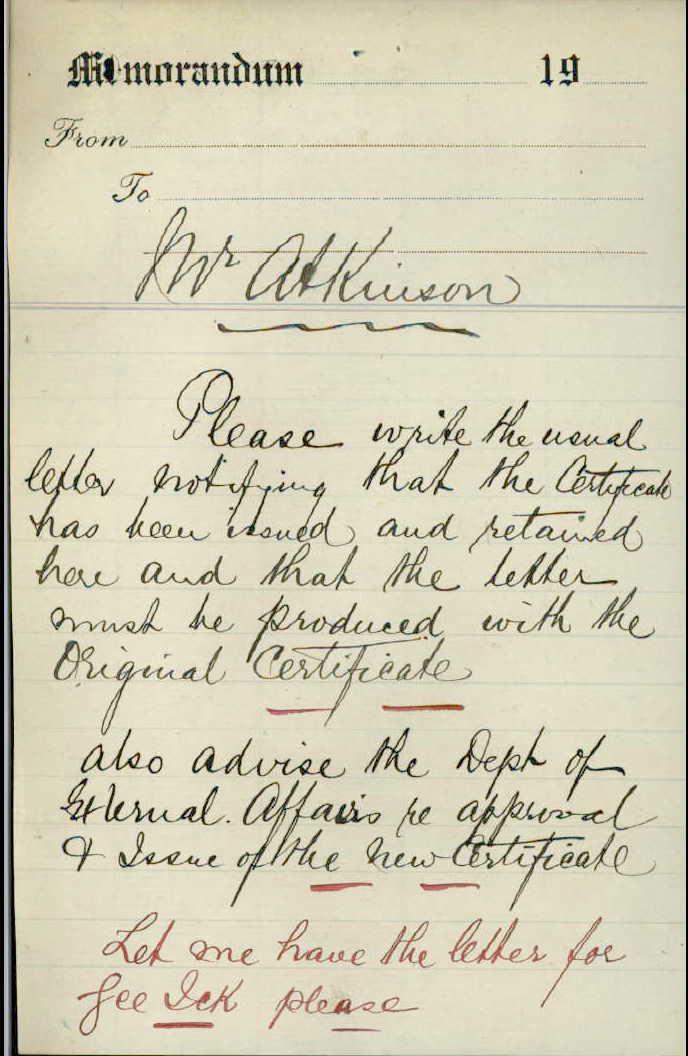 Memorandum 19
From
To
Mr Atkinson
Please write the usual
letter notifying that the Certificate
has been issued and retained
here and that the letter
must be produced with the
Original Certificate
also advise the Dept of
External. Affairs re approval
& Issue of the new Certificate
Let me have the letter for
Gee Ick please